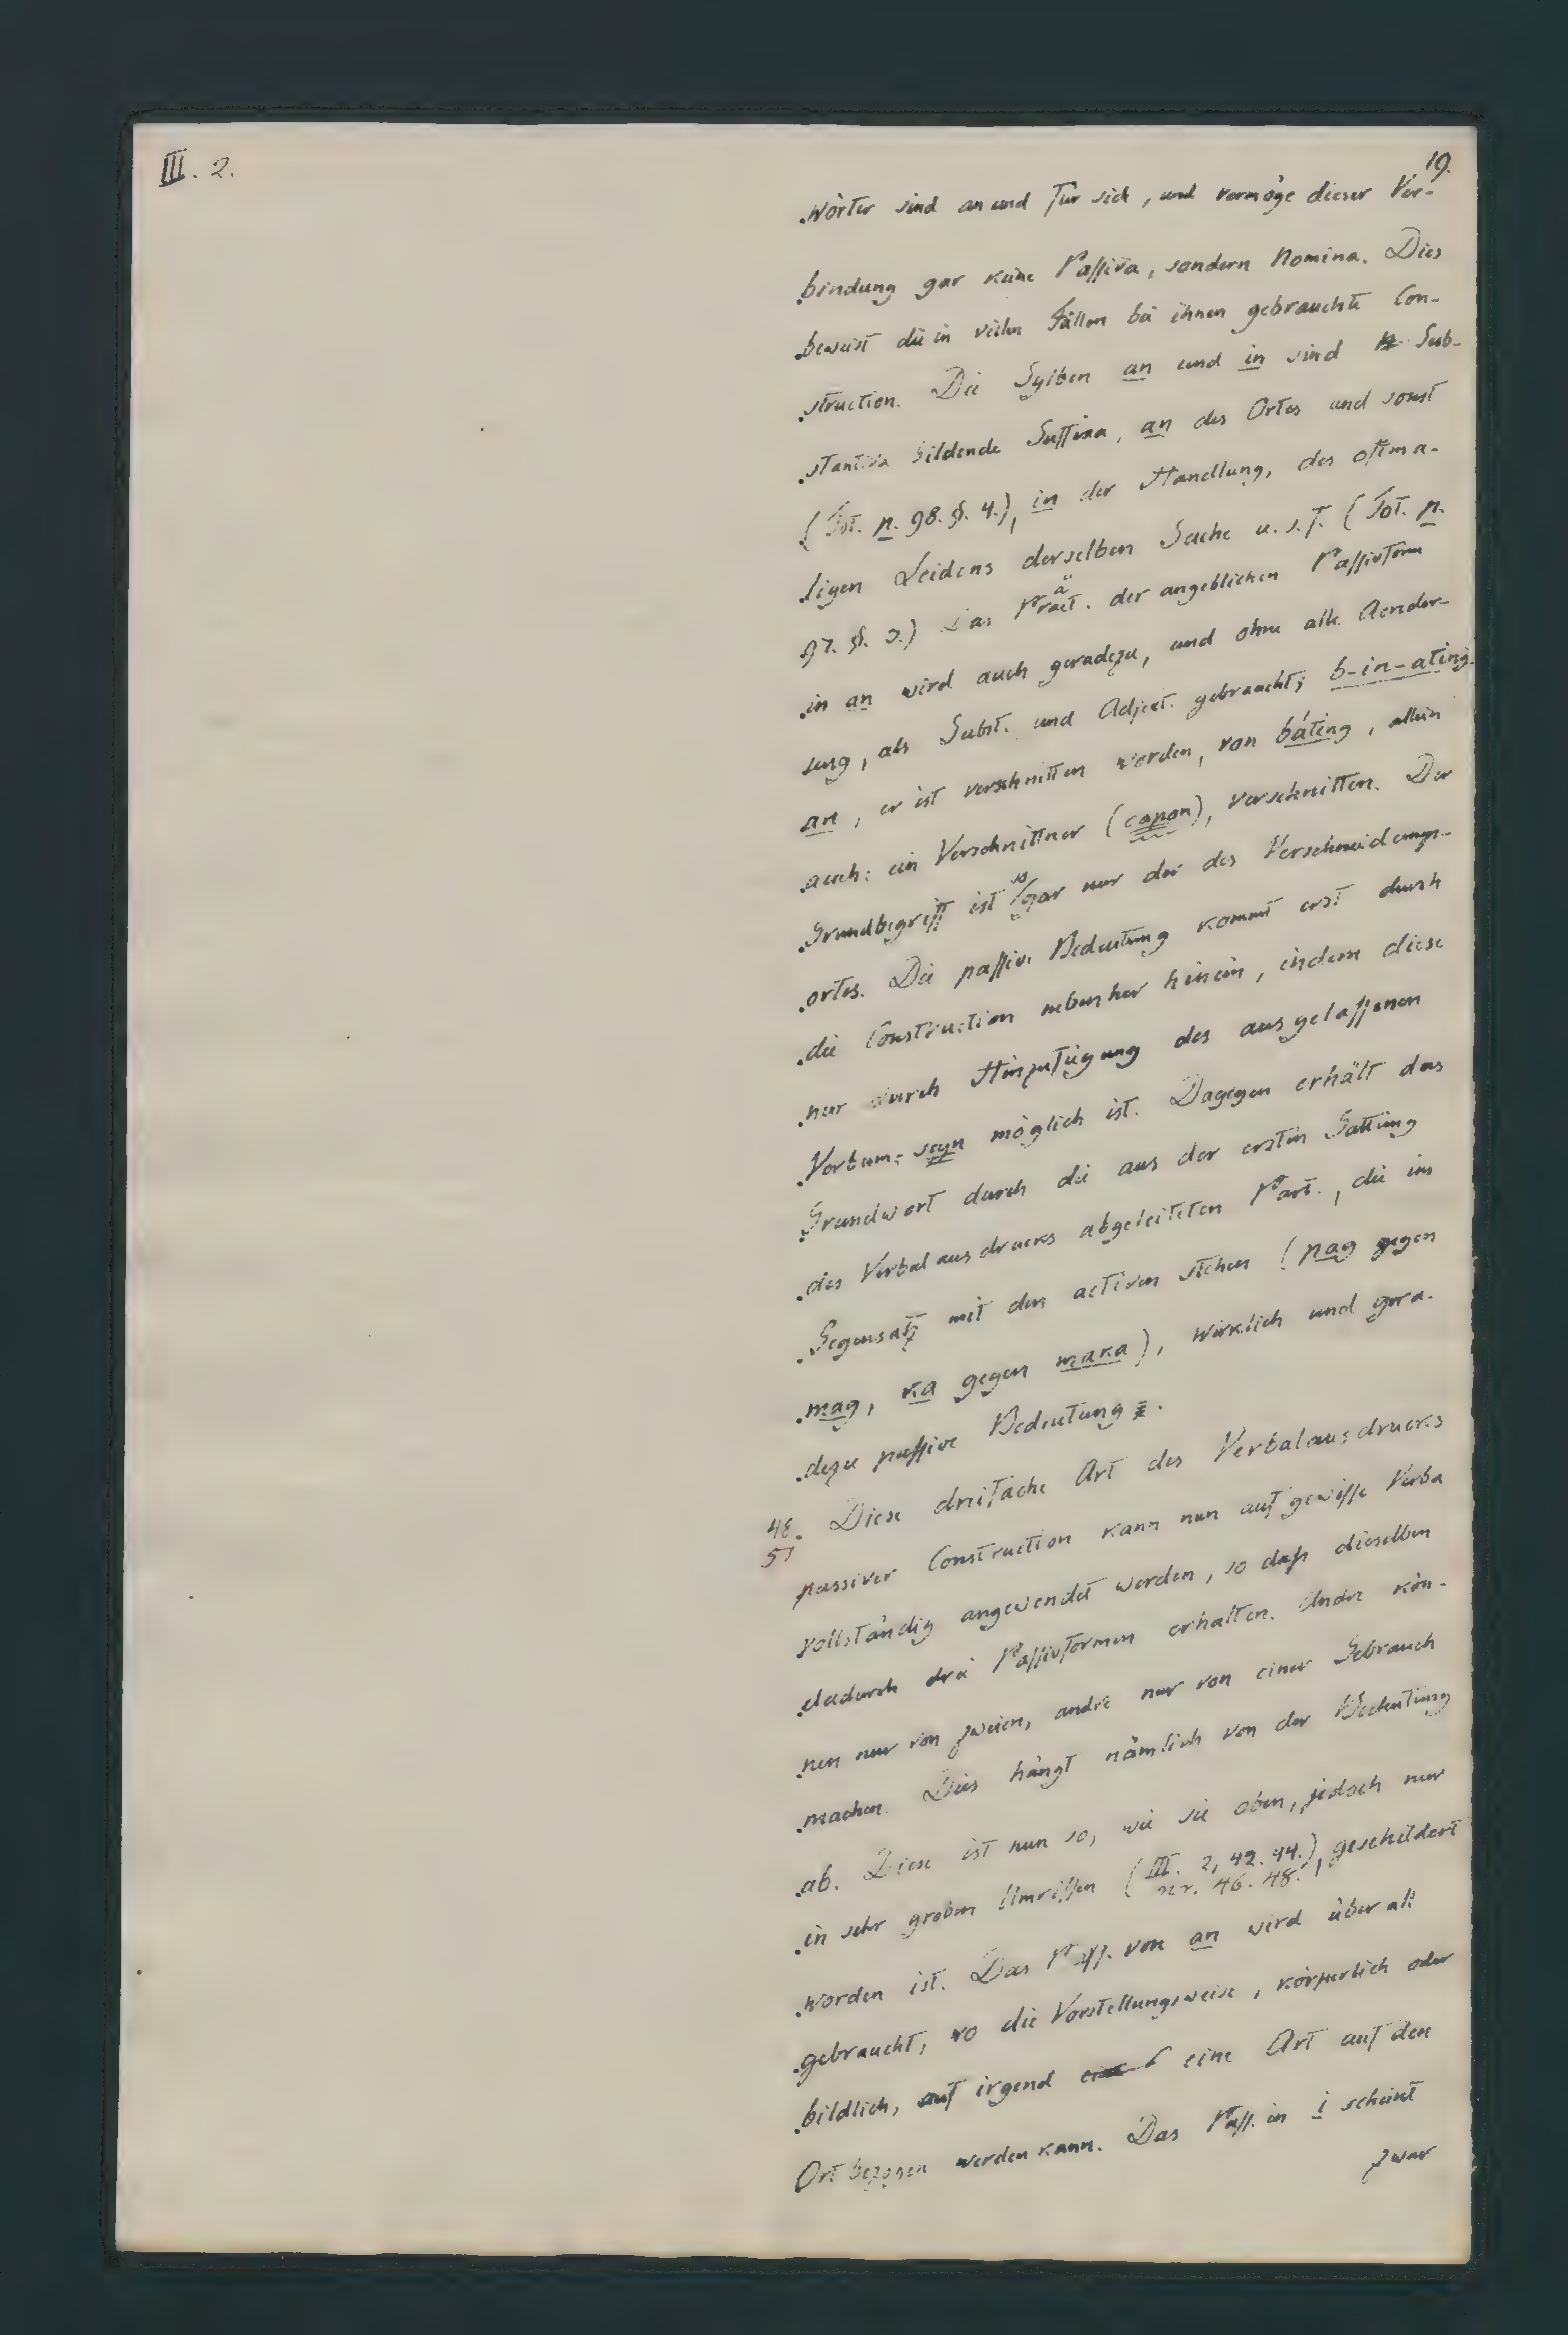 III. 2.
19.
wörter sind an und für sich, und vermöge dieser Ver-
bindung gar keine Passiva, sondern Nomina. Dies
beweist die in vielen Fällen bei ihnen gebrauchte Con-
struction. Die Sylben an und in sind Sub-
stantiva bildende Suffixa, an des Ortes und sonst
(Tot. p. 98. §. 4.), in der Handlung, des oftma-
ligen Leidens derselben Sache u. s. f. (Tot. p.
97. §. 3.) Das Praet. der angeblichen Passivform
in an wird auch geradezu, und ohne alle Aender-
ung, als Subst. und Adject. gebraucht; b-in-ating-
an, er ist verschnitten worden, von báting, allein
auch: ein Verschnittner (capon), verschnitten. Der
Grundbegriff ist sogar nur der des Verschneidungs-
ortes. Die passive Bedeutung kommt erst durch
die Construction nebenher hinein, indem diese
nur durch Hinzufügung des ausgelassenen
Verbum: seyn möglich ist. Dagegen erhält das
Grundwort durch die aus der ersten Gattung
des Verbalausdrucks abgeleiteten Part., die im
Gegensatz mit den activen stehen (pag gegen
mag, ka gegen maka), wirklich und gera-
dezu passive Bedeutung.
48.
51
Diese dreifache Art des Verbalausdrucks
passiver Construction kann nun auf gewisse Verba
vollständig angewendet werden, so daß dieselben
dadurch drei Passivformen erhalten. Andre kön-
nen nur von zweien, andre nur von einer Gebrauch
machen. Dies hängt nämlich von der Bedeutung
ab. Diese ist nun so, wie sie oben, jedoch nur
in sehr groben Umrissen (III. 2, 42. 44.), geschildert
nr. 46. 48.
worden ist. Das Pass. von an wird überall
gebraucht, wo die Vorstellungsweise, körperlich oder
bildlich, auf irgend eine Art auf den
Ort bezogen werden kann. Das Pass. in i scheint
zwar